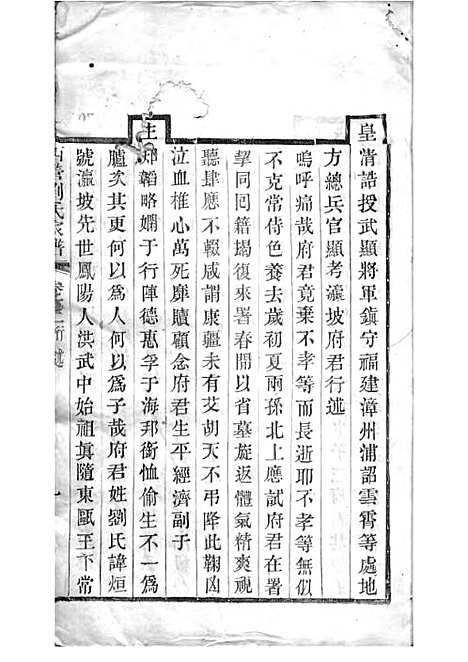 皇清誥授武顯將軍鎮守福建漳州浦詔雲霄等處地
方總兵官顯考瀛坡府君行述
嗚呼痛哉府君竟棄不孝等而長逝耶不孝等無似
不克常侍色養去歲初夏雨孫北上應試府君在署
挈同回籍暘復來署春開以省墓旋返體氣精爽視
聽肆應不輟咸謂康疆未有艾胡天不弔降此鞠凶
泣血椎心萬死靡贖顧念府君生平經濟副于
主知韜略嫻于行陣德惠孚于海邦銜恤偷生不一為
臚矣其更何以為人何以為子哉府君姓劉氏諱烜
號瀛坡先世鳳陽人洪武中始祖眞隨東甌王下常
劉氏家譜 行述